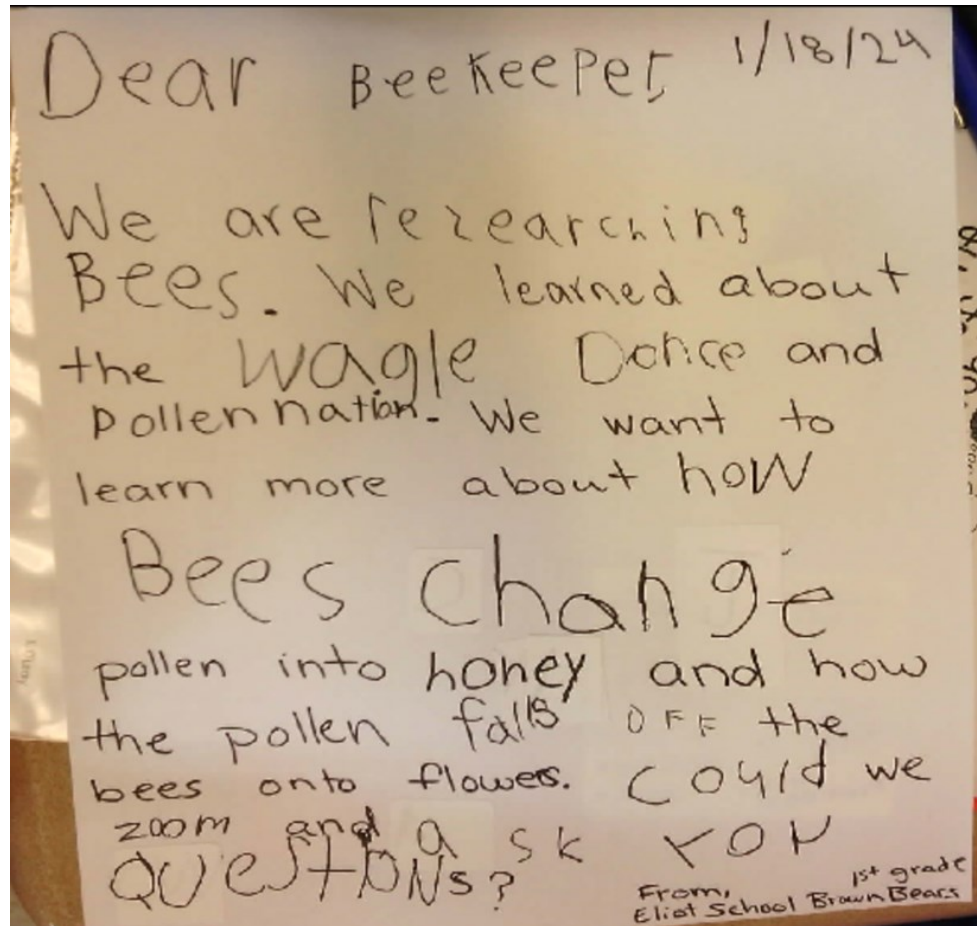 Dear BeeKeePer, 1/18/24
We are rezearching
Bees. We learned about
the wagle Dance and
pollennation. We want to
learn more about how
Bees change
pollen into honey and how
the pollen falls OFF the
bees onto flowers. Could we
zoom and ask YOU
QUeSTIONs?
From, 1st grade
Eliot School Brown Bears